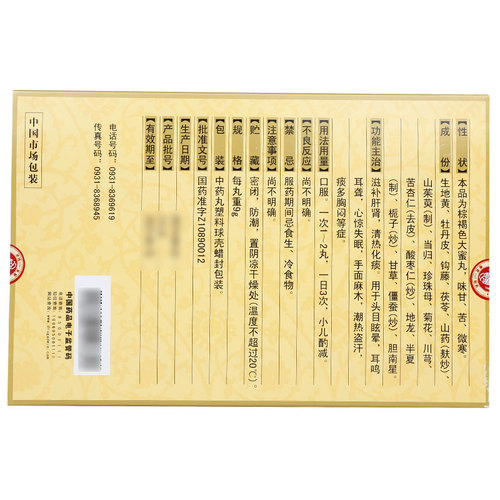 【性状】本品为棕褐色大蜜丸，味甘、苦，微寒。
【成份】生地黄、牡丹皮、钩藤、茯苓、山药(麸炒)、
山茱萸(制)、当归、珍珠母、菊花、川芎、
苦杏仁(去皮)、酸枣仁(炒)、地龙、半夏
(制)、栀子(炒)、甘草、僵蚕(炒)、胆南星。
【功能主治】滋补肝肾，清热化痰。用于头目眩晕，耳鸣
耳聋，心惊失眠，手面麻木，潮热盗汗，
痰多胸闷等症。
【用法用量】口服。一次1~2丸，一日3次，小儿酌减。
【不良反应】尚不明确。
【禁忌】服药期间忌食生、冷食物。
【注意事项】尚不明确。
【贮藏】密闭，防潮，置阴凉干燥处(温度不超过20℃)。
【规格】每丸重9g
【包装】中药丸塑料球壳蜡封包装
【批准文号】国药准字Z10890012
【生产日期】
【产品批号】
【有效期至】
电话号码：0931-8369619
传真号码：0931-8368945
中国市场包装
中国药品电子监管码